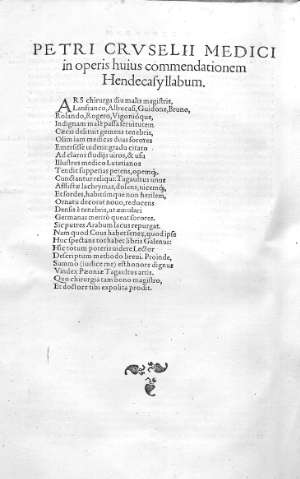 PETRI CRVSELII MEDICI
in operis huius commendationem
Hendecasyllabum.
ARS chirurga diu malis magistris,
Lanfranco, Albucasi, Guidone, Bruno,
Rolando, Rogero, Vigonióque,
Indignam malè passa seruitutem
Cæco desituit gemens tenebris,
Olim iam medicas duas sorores
Emersisse videns gradu citato
Ad claros studijs viros, & usu
Illustres medicos Lutetianos
Tendit suppetias petens, opemq́;
Cunctantur reliqui: Tagaultius unus
Afflictæ lachrymas, dolens, vicemq́;
Et sordes, habitúmque non herilem,
Ornatu decorat nouo, reducens
Densis è tenebris, ut æmulari
Germanas meritò queat sorores.
Sic putres Arabum lacus repurgat.
Nam quod Cous habet senex, quod ipsi
Huc spectans tot habet libris Galenus
Hic totum poteris videre Lector
Descriptum methodo breui. Proinde,
Summo (iudice me) est honore dignus
Vindex Pæoniæ Tagaultus artis,
Quo chirurgia tam bono magistro,
Et doctore tibi expolita prodit.